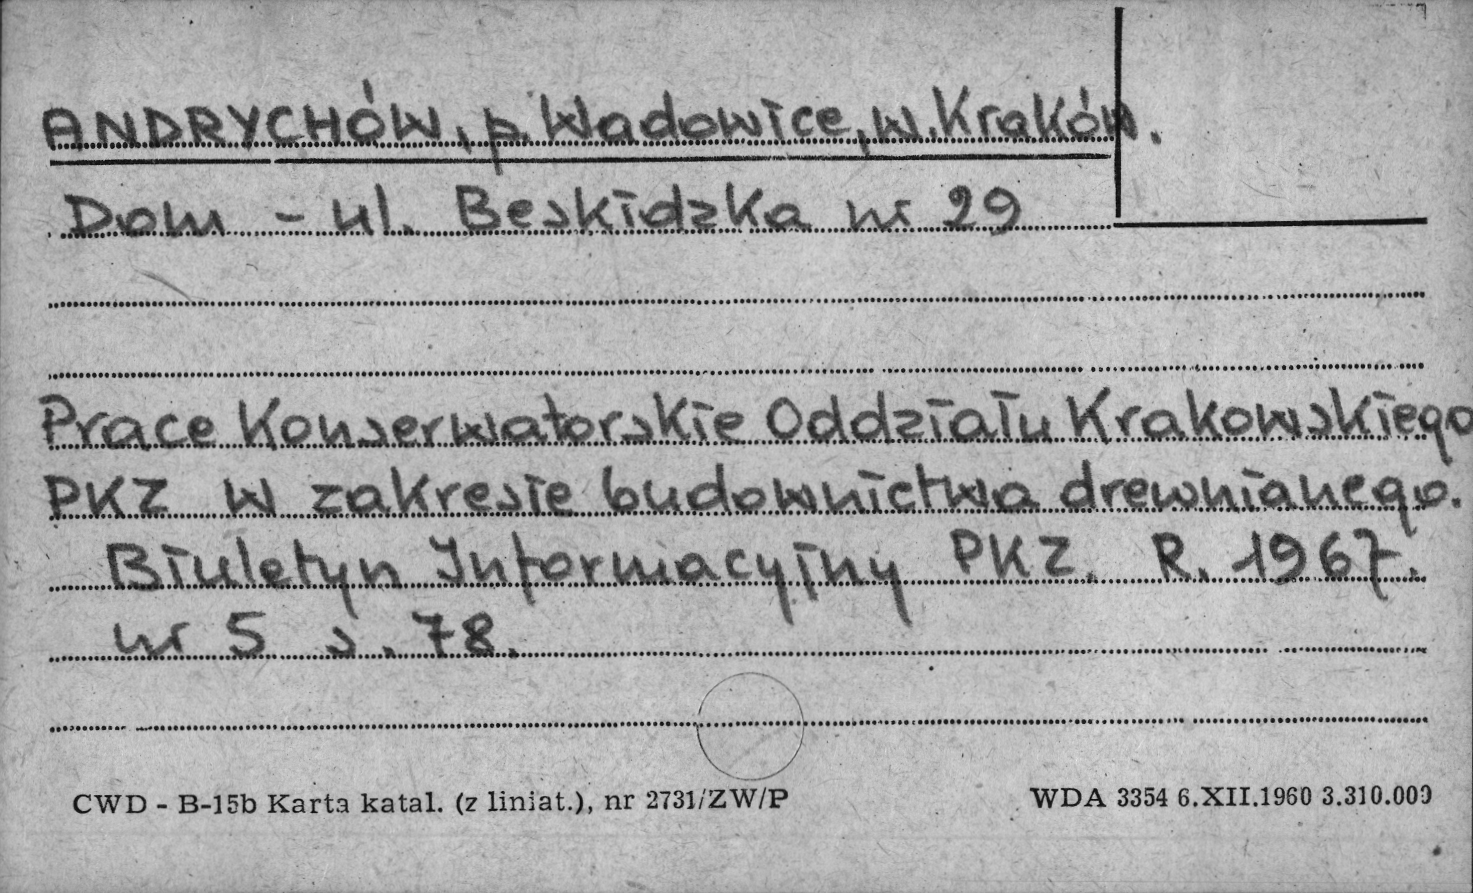 ANDRYCHÓW, p. Wadowice, w. Kraków.
Dom - ul. Beskidzka nr 29
Prace Konserwatorskie Oddziału Krakowskiego
PKZ w zakresie budownictwa drewnianego.
Biuletyn Informacyjny PKZ. R. 1967.
nr 5 s. 78.
CWD - B-15b Karta katal. (z liniat.), nr 2731/ZW/P WDA 3354 6.XII.1960 3.310.000